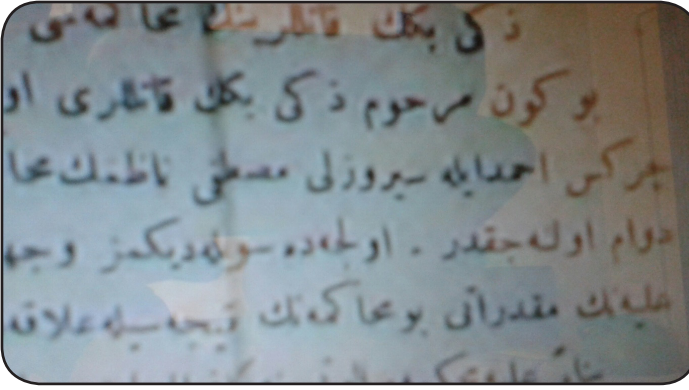 ذكی بكك قاتللرینك محاكمه‌سی
بو كون مرحوم ذكی بكك قاتللری او
چركس احمدایله سیروزلی مصطفی ناظمك محا
دوام اوله‌جقدر . اولجه‌ده سویله‌دیكمز وجه
علیه‌نك مقدراتی بو محاكمه‌نك نتیجه‌سیله علاقه